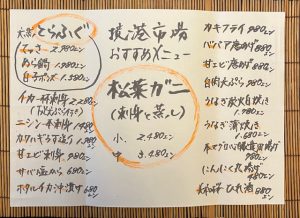 境港市場
おすすめメニュー
松葉ガニ
(刺身と蒸し)
小、2.480エン
中 3.480エン
とらふぐ
てっさ 2.980エン
ぬら鍋 1.980エン
白子ポン酢 1.380エン
イカ一杯刺身 2.280エン
ニシン一本刺身 1.480エン
カワハギうす造り 1.680エン
甘エビ刺身 980エン
サバ塩から 680エン
ホタルイカ沖漬け 680エン
カキフライ 980エン
甘エビ唐揚げ 880エン
白肉天ぷら 980エン
うなぎ炭火白焼き
1.980エン
うなぎ蒲焼き
1.680エン
にんにく 丸揚げ 480エン
ひれ酒 680エン